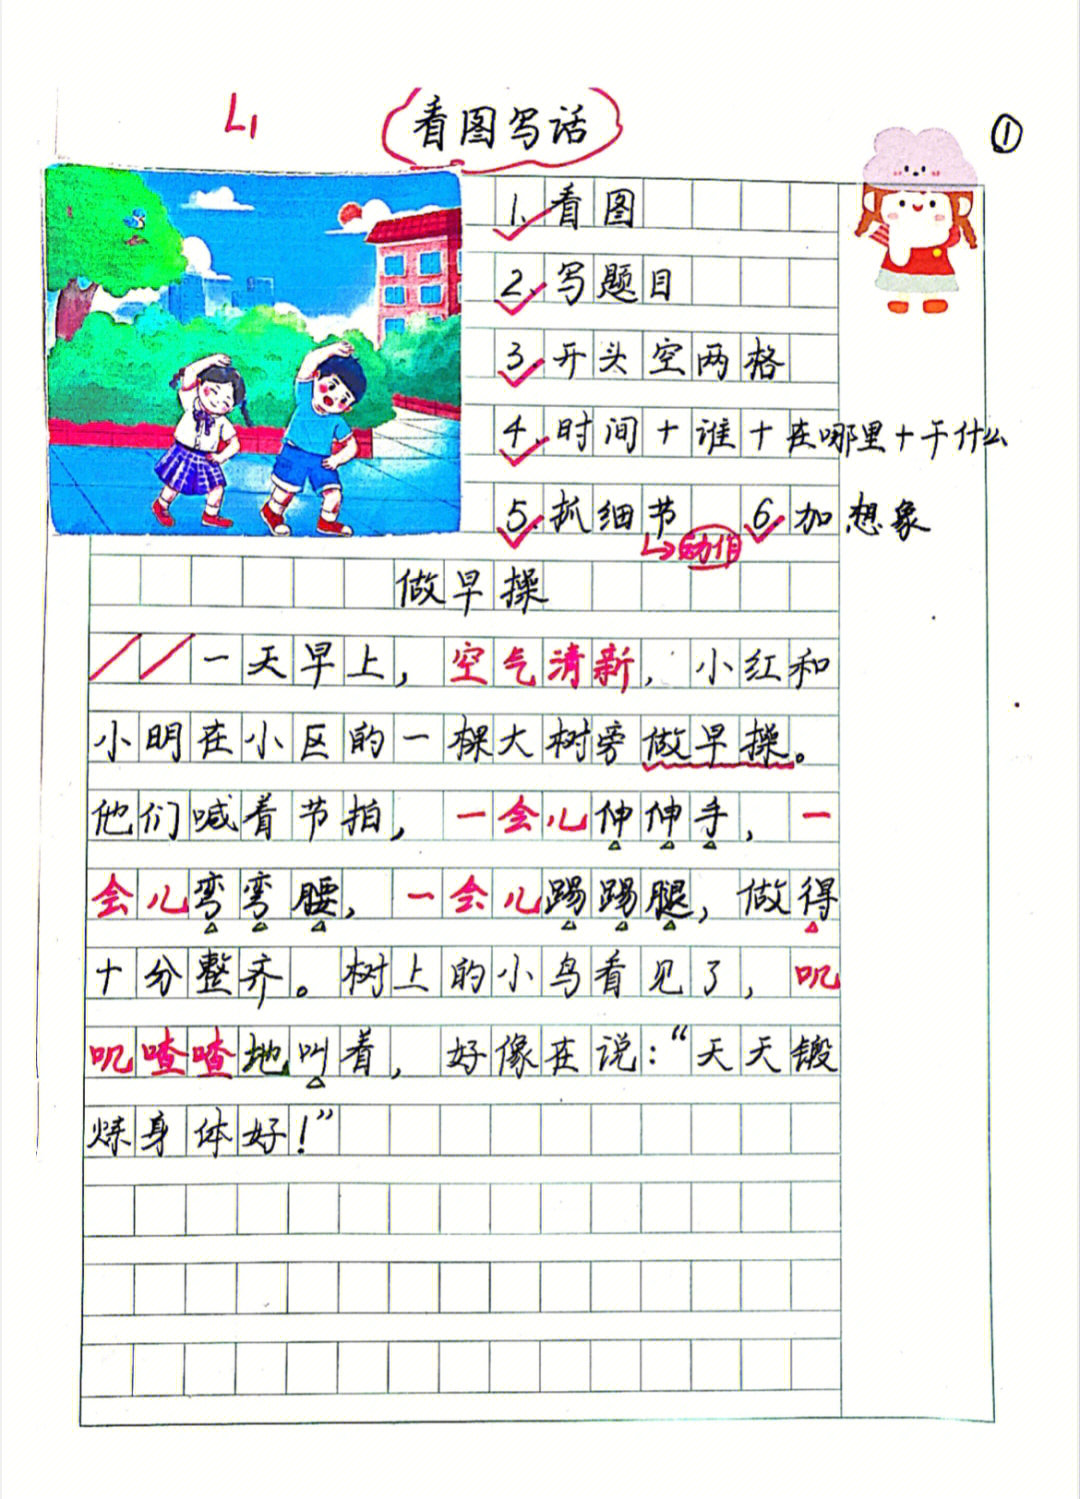 L1
看图写话
①
1. 看图
2. 写题目
3. 开头空两格
4. 时间+谁+在哪里+干什么
5. 抓细节 6. 加想象
↳动作
做早操
一天早上，空气清新，小红和
小明在小区的一棵大树旁做早操。
他们喊着节拍，一会儿伸伸手，一
会儿弯弯腰，一会儿踢踢腿，做得
十分整齐。树上的小鸟看见了，叽
叽喳喳地叫着，好像在说：“天天锻
炼身体好！”